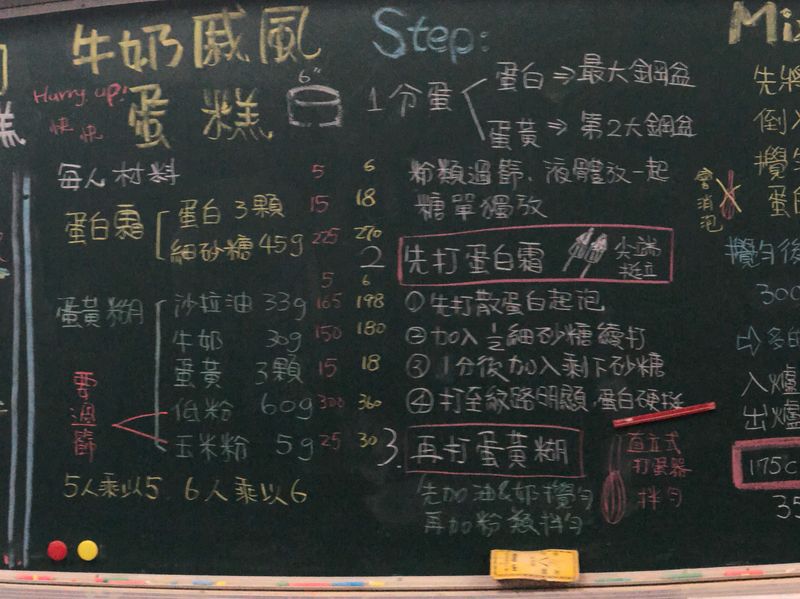 牛奶戚風
蛋糕
6"
Hurry up!
快快
每人材料 5 6
蛋白霜 蛋白 3顆 15 18
細砂糖 45g 225 270
5 6
蛋黃糊 沙拉油 33g 165 198
牛奶 30g 150 180
蛋黃 3顆 15 18
低粉 60g 300 360
玉米粉 5g 25 30
要過篩
5人乘以5 6人乘以6
Step:
1 分蛋 蛋白⇒最大鋼盆
蛋黃⇒第2大鋼盆
粉類過篩、液體放一起
糖單獨放
2 先打蛋白霜 尖端
挺立
①先打散蛋白起泡
②加入½細砂糖續打
③1分後加入剩下砂糖
④打至紋路明顯,蛋白硬挺
3. 再打蛋黃糊
先加油&奶攪勻
再加粉類拌勻
直立式
打蛋器
拌勻
會消泡
Mix
先將
倒入
攪勻
蛋白
攪勻後
300
⇒多的
入爐
出爐
175c
35